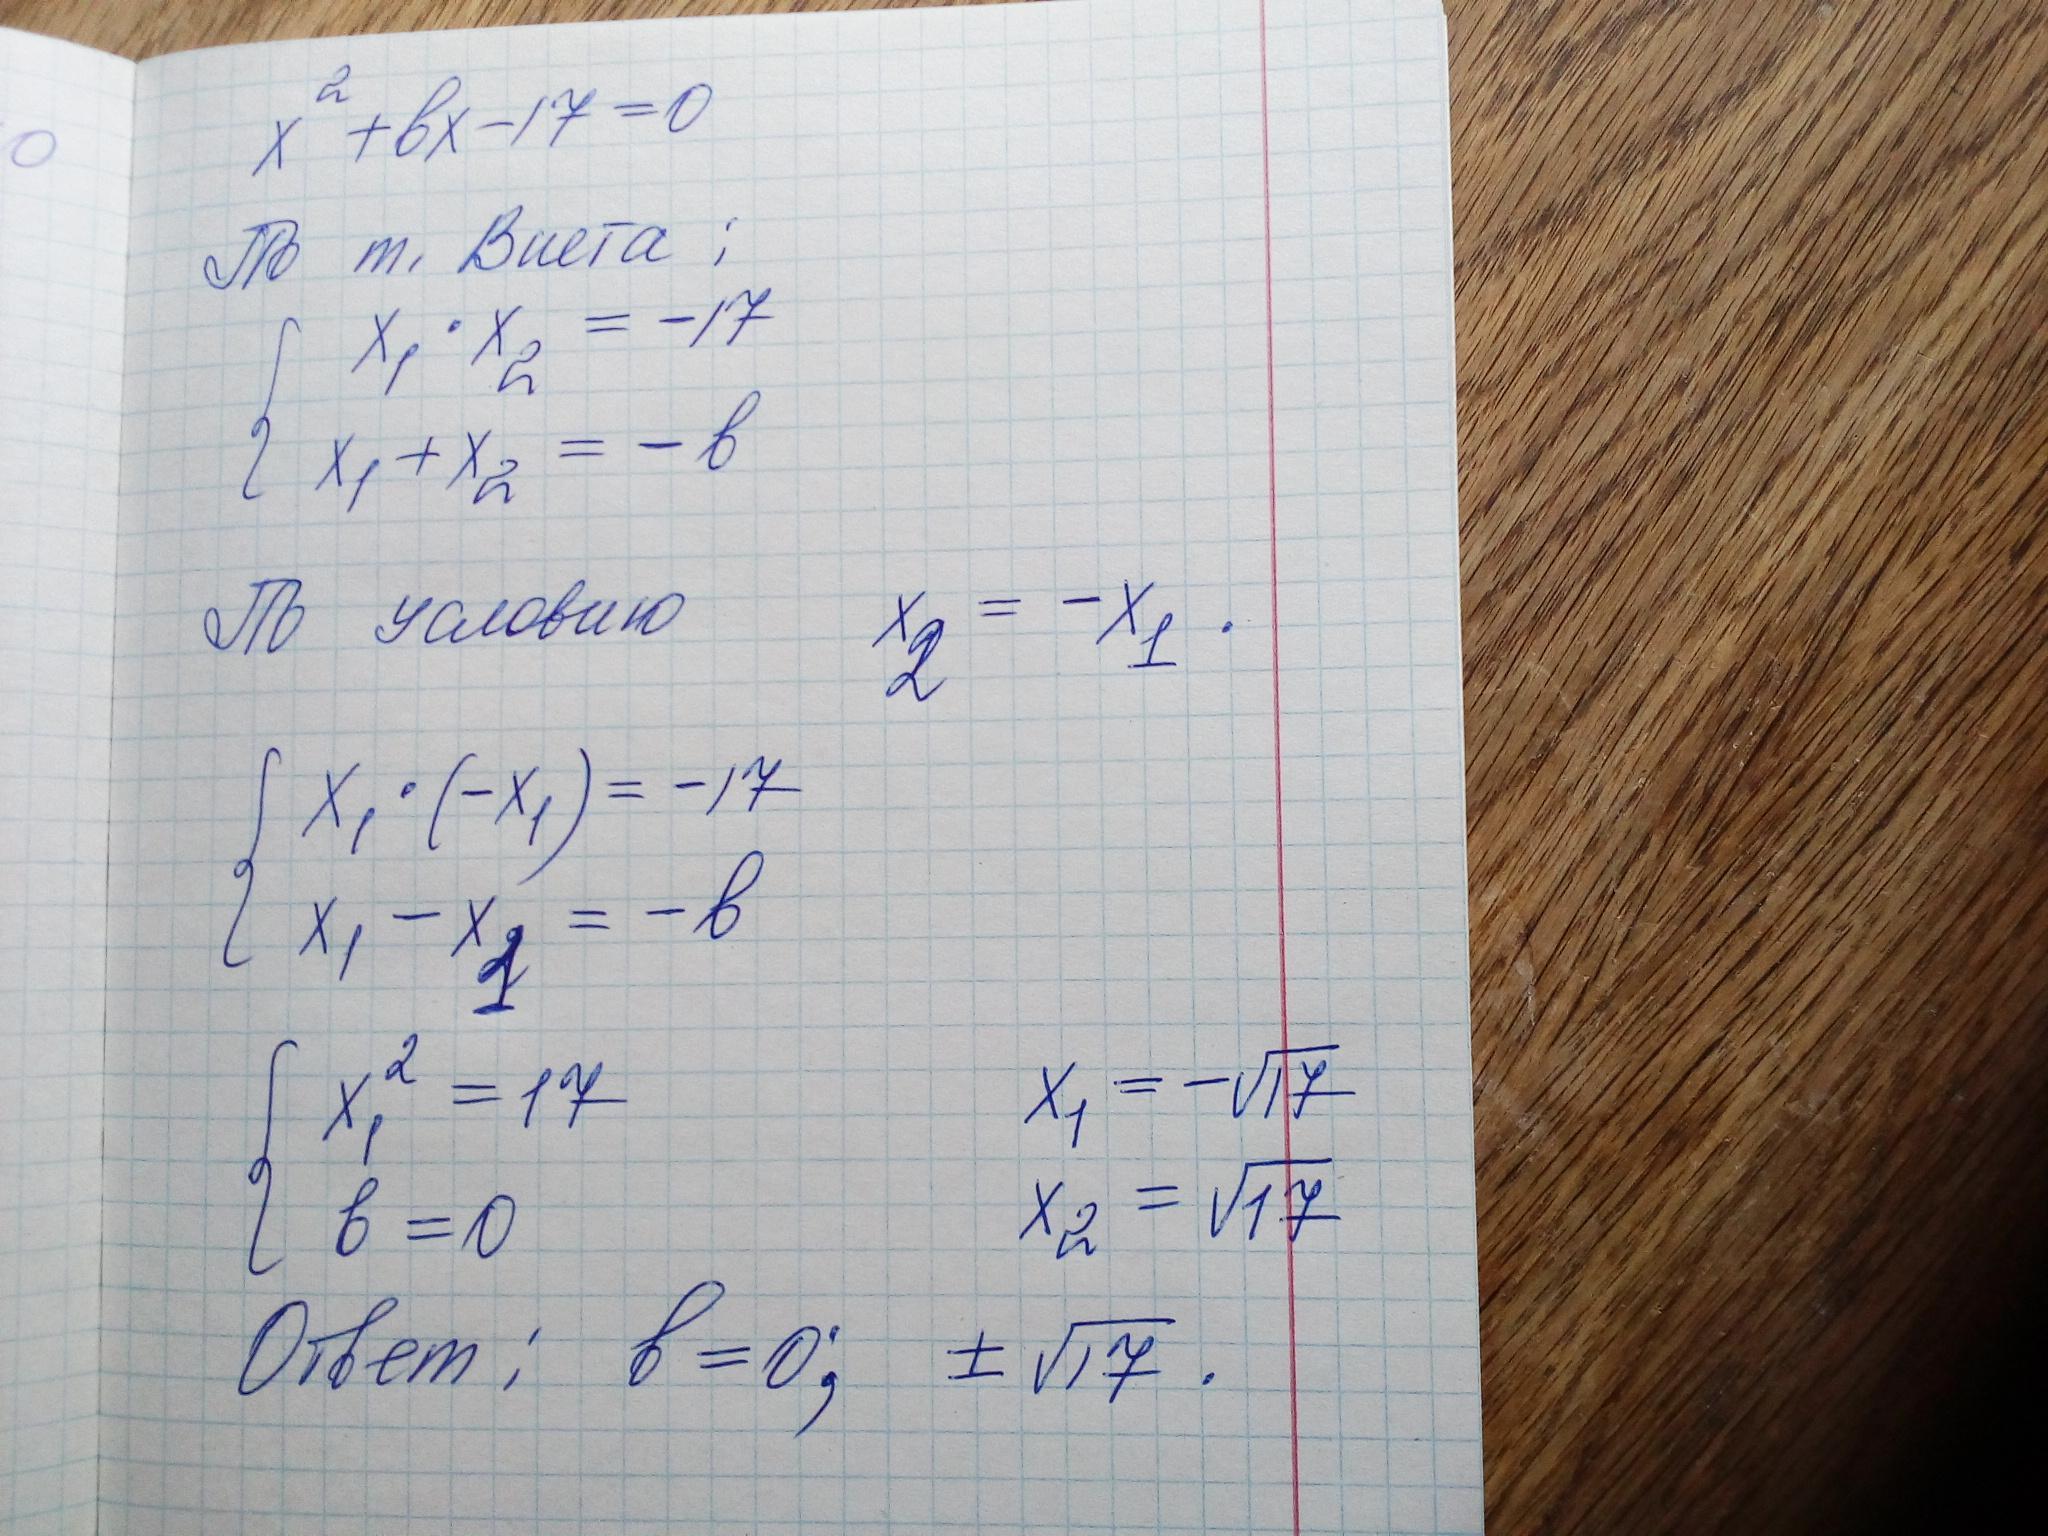 x² + bx - 17 = 0
По т. Виета:
x₁ · x₂ = -17
x₁ + x₂ = -b
По условию x₂ = -x₁.
x₁ · (-x₁) = -17
x₁ - x₁ = -b
x₁² = 17 x₁ = -√17
b = 0 x₂ = √17
Ответ: b = 0; ±√17.